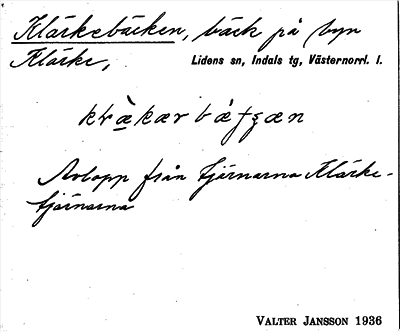 Klärkebäcken, bäck på byn
Klärke, Lidens sn, Indals tg, Västernorrl. l.
Avlopp från tjärnarna Klärke-
tjärnarna
VALTER JANSSON 1936